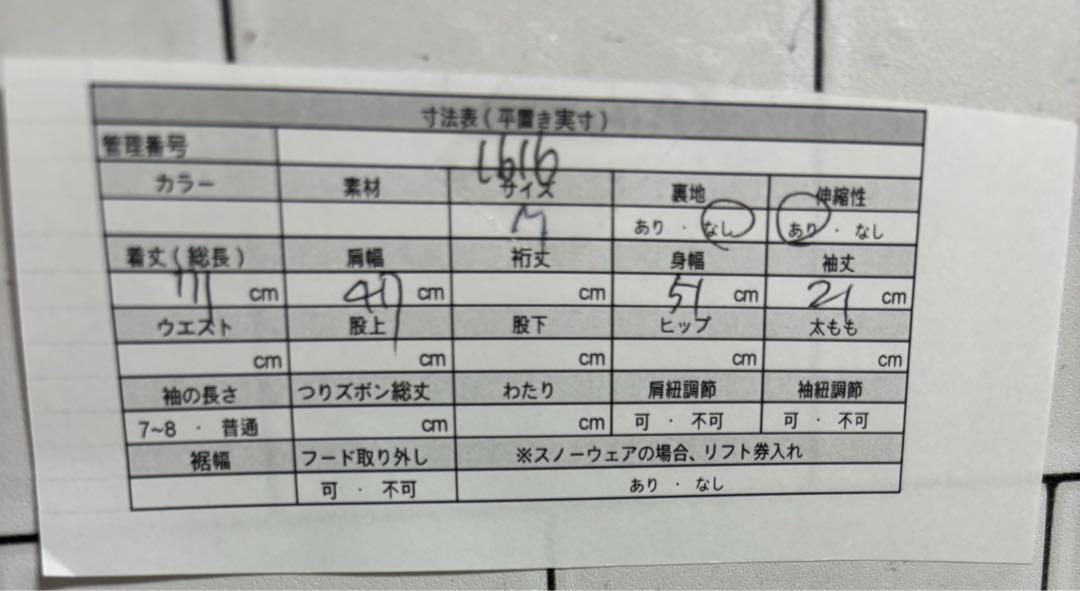 寸法表(平置き実寸)
管理番号 1616
カラー 素材 サイズ 裏地 伸縮性
M あり ・ なし あり ・ なし
着丈(総長) 肩幅 裄丈 身幅 袖丈
cm cm cm 51 cm 21 cm
ウエスト 股上 股下 ヒップ 太もも
cm cm cm cm cm
袖の長さ つりズボン総丈 わたり 肩紐調節 袖紐調節
7~8 ・ 普通 cm cm 可 ・ 不可 可 ・ 不可
裾幅 フード取り外し ※スノーウェアの場合、リフト券入れ
可 ・ 不可 あり ・ なし